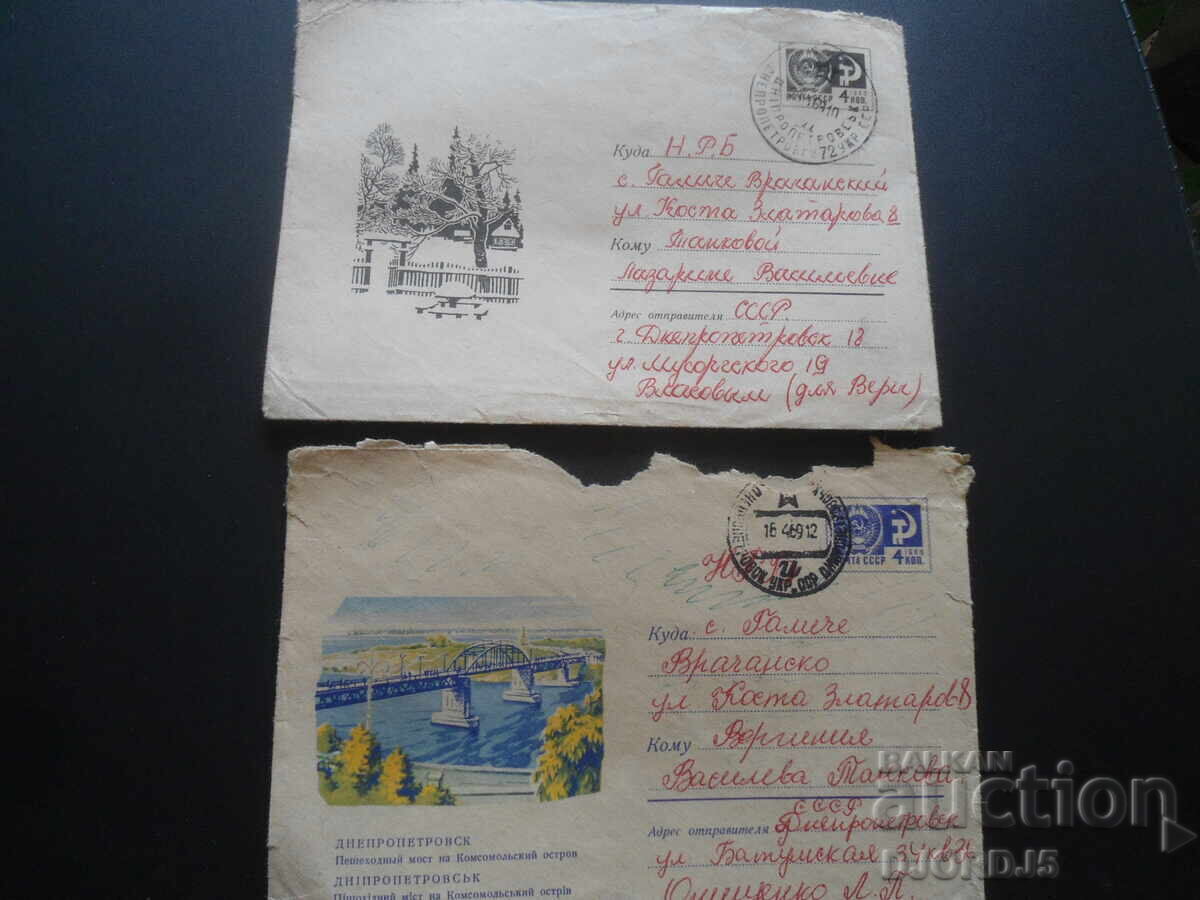 ПОЧТА СССР
4 КОП.
1966
ДНЕПРОПЕТРОВСК 72 УКР. ССР
Куда Н.Р.Б
с. Галиче Врачанский
ул Коста Златарова 8
Кому Танковой
Лазарине Василиевне
Адрес отправителя СССР.
г. Днепропетровск 18
ул. Мусоргского 19
Власовым (для Веры)
18 4 69 12
ПОЧТА СССР
4 КОП.
1966
Куда с. Галиче
Врачанско
ул Коста Златаров-8
Кому Вергиния
Василева Танкева
Адрес отправителя СССР
Днепропетровск
ул Батумская
Ющенко Л. П.
ДНЕПРОПЕТРОВСК
Пешеходный мост на Комсомольский остров
ДНІПРОПЕТРОВСЬК
Пішохідний міст на Комсомольський острів
BALKAN
auction
DJORDJ5